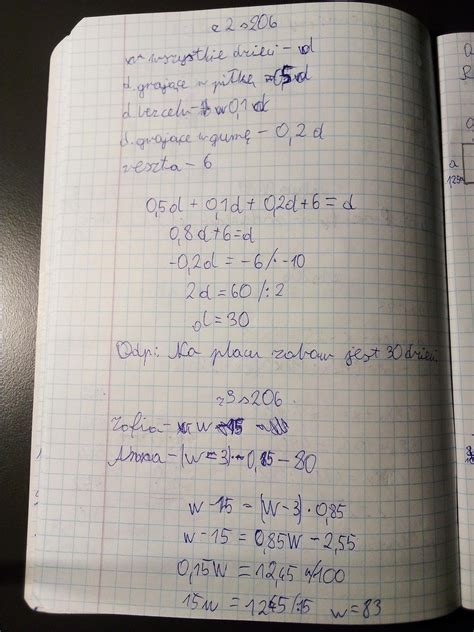 z 2 s 206
wszystkie dzieci - d
d. grające w piłkę - 0,5d
d. bez celu - 0,1d
d. grające w gumę - 0,2d
reszta - 6
0,5d + 0,1d + 0,2d + 6 = d
0,8d + 6 = d
-0,2d = -6 /· -10
2d = 60 /:2
d = 30
Odp.: Na placu zabaw jest 30 dzieci
z 3 s 206
Zofia - w - 15
Anna - (w - 3) · 0,85 - 80
w - 15 = (w - 3) · 0,85
w - 15 = 0,85w - 2,55
0,15w = 12,45 /·100
15w = 1245 /:15 w = 83